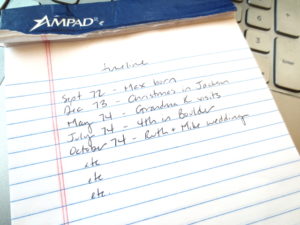 AMPAD
timeline
Sept 72 - Max born
Dec 73 - Christmas in Jackson
May 74 - Grandma & visits
July 74 - 4th in Boulder
October 74 - Ruth + Mike wedding
etc
etc
etc.